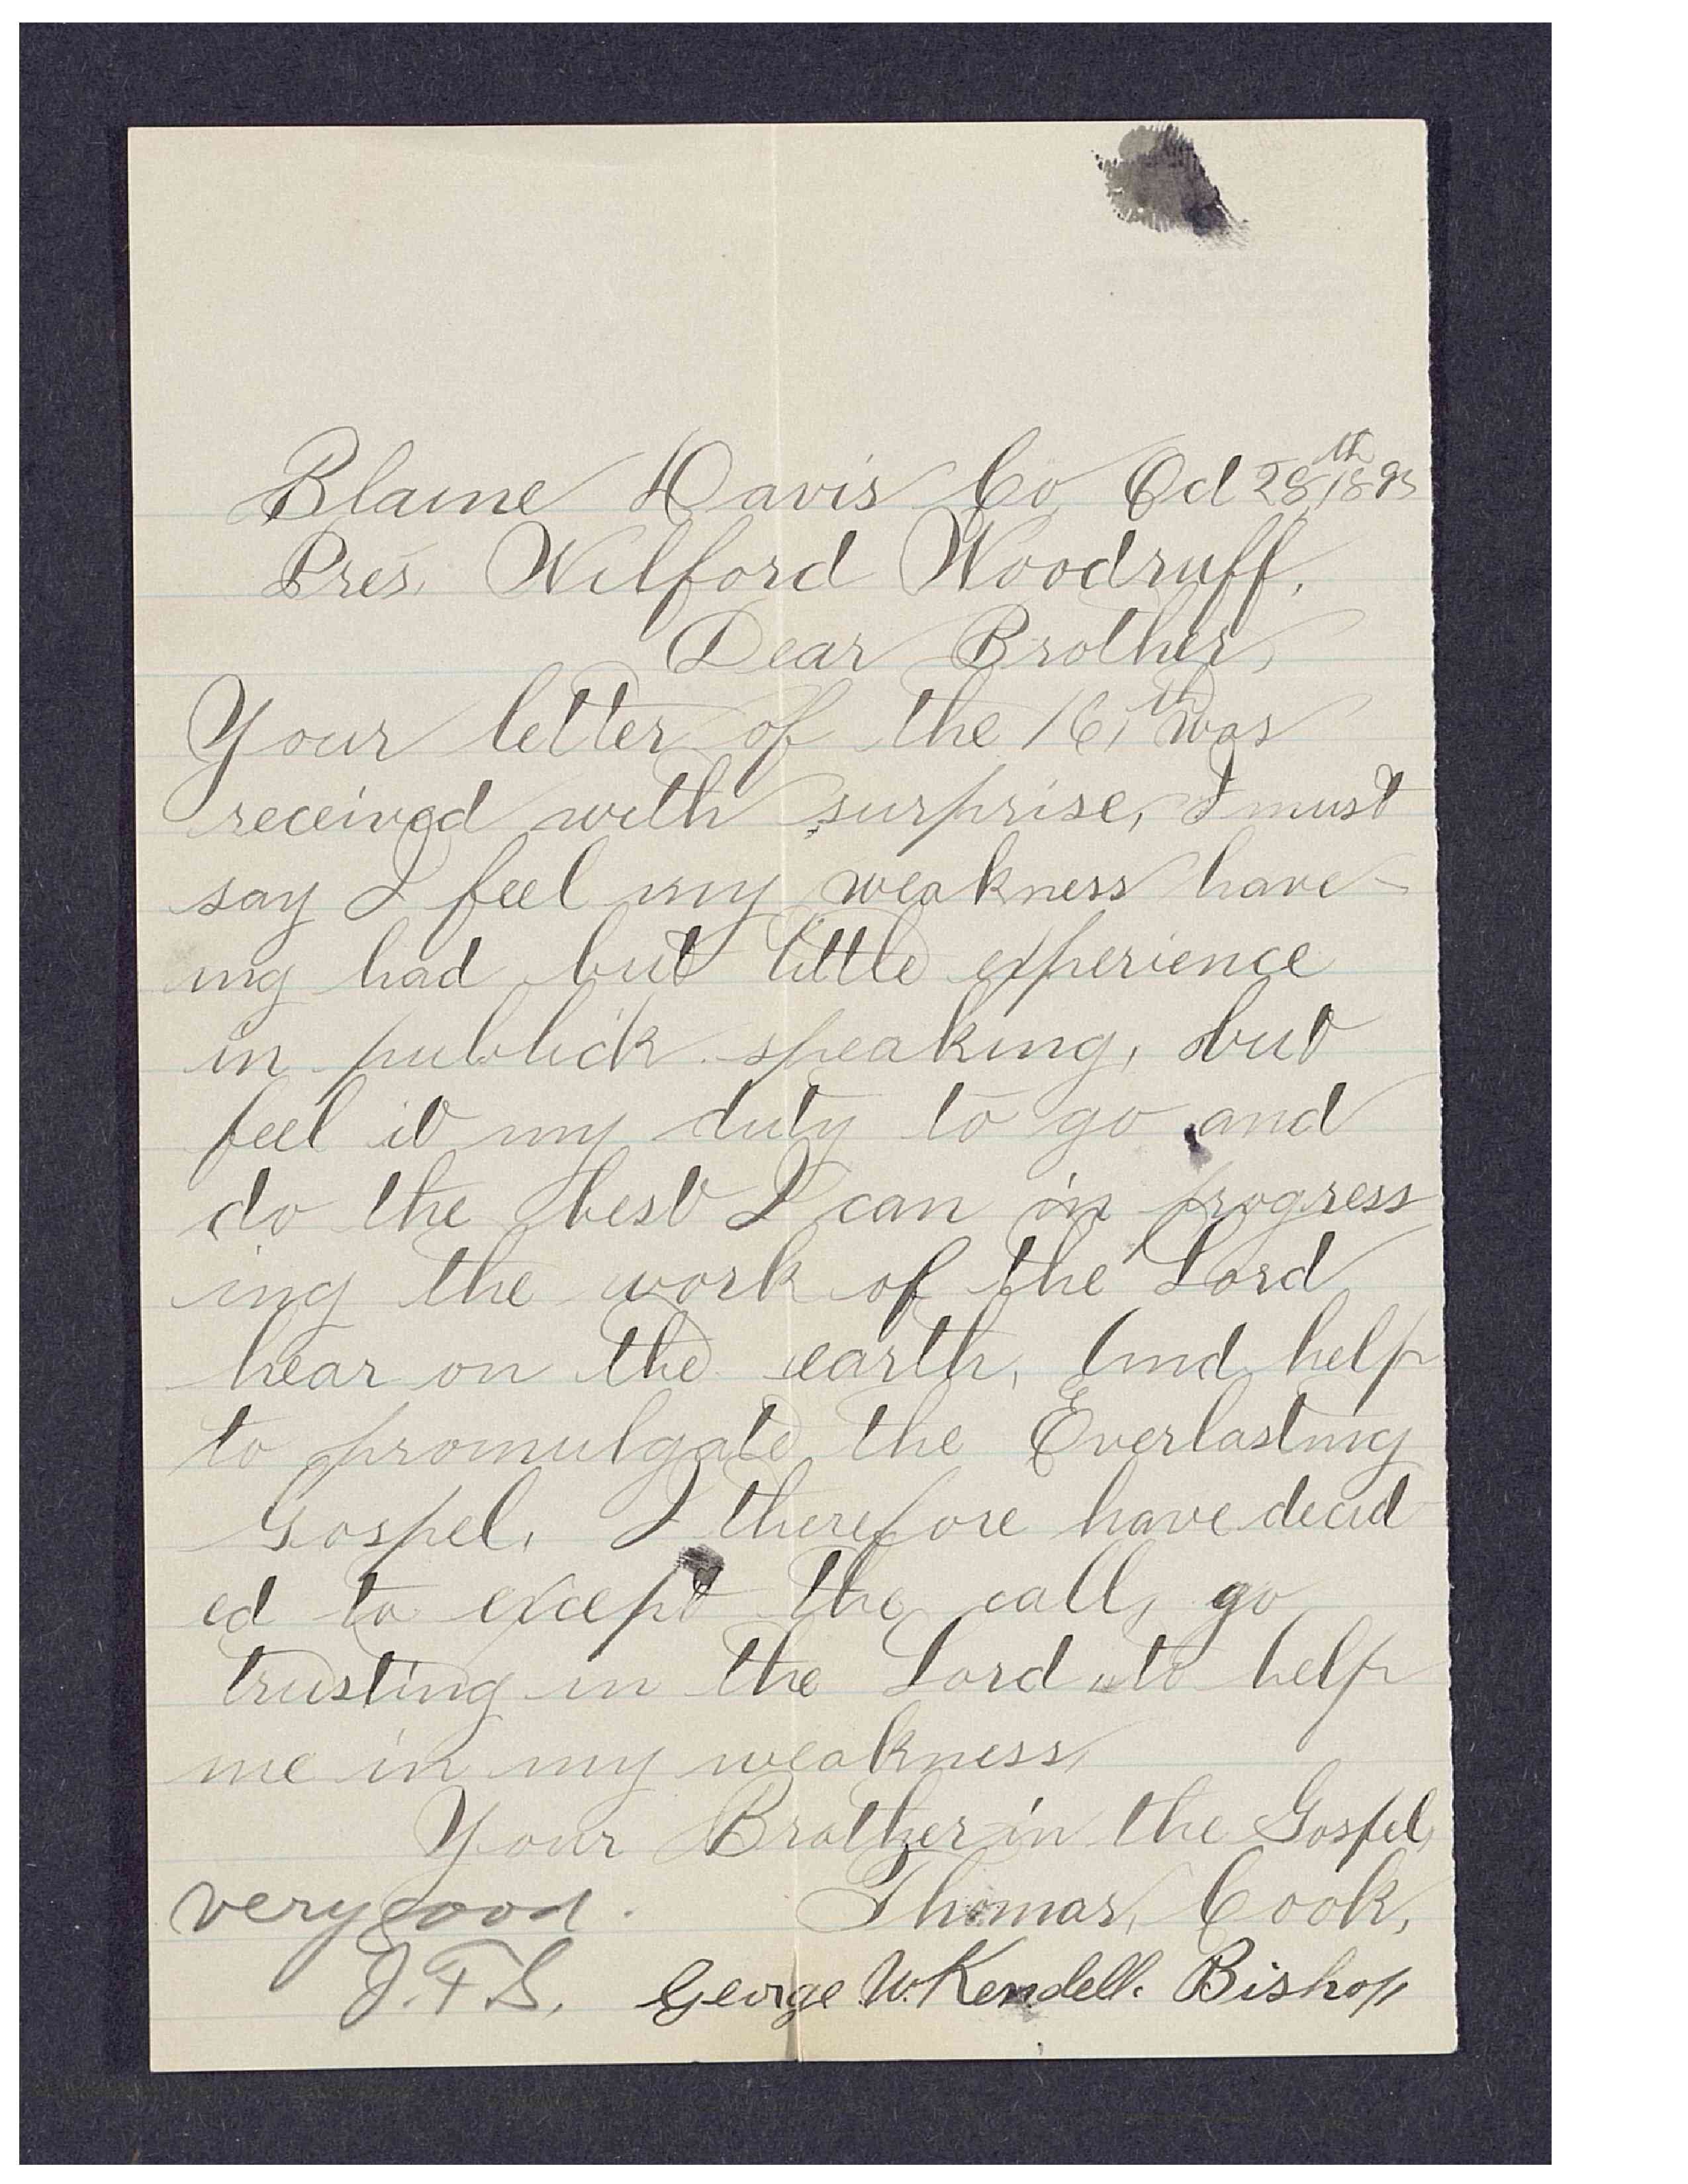 Blaine Davis Co, Oct 28th, 1893
Pres, Wilford Woodruff,
Dear Brother,
Your letter of the 16,th was
received with surprise, I must
say I feel my weakness have-
ing had but little experience
in publick speaking, but
feel it my duty to go and
do the best I can in progress
ing the work of the Lord
hear on the earth, And help
to promulgate the Everlasting
Gospel, I therefore have decid
ed to except the call, go
trusting in the Lord to help
me in my weakness,
Your Brother in the Gospel,
Thomas, Cook,
very good.
J. F. S.
George W. Kendell. Bishop